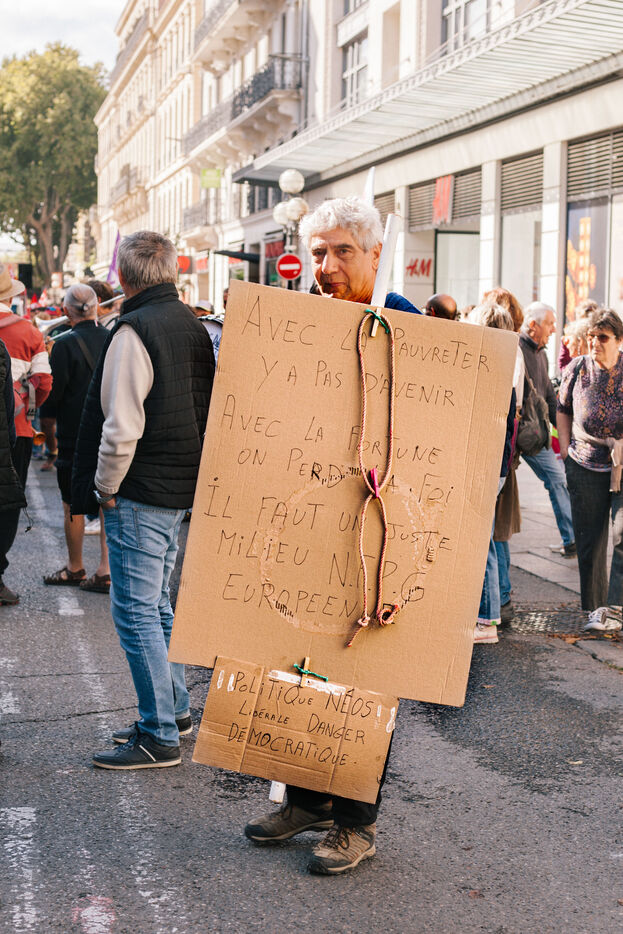 AVEC LA PAUVRETER
Y A PAS D'AVENIR
AVEC LA FORTUNE
ON PERD LA FOI
IL FAUT UN JUSTE
MILIEU N.F.P.G
EUROPEEN
!! POLITIQUE NÉOS !!
LIBÉRALE DANGER
DÉMOCRATIQUE.
H&M